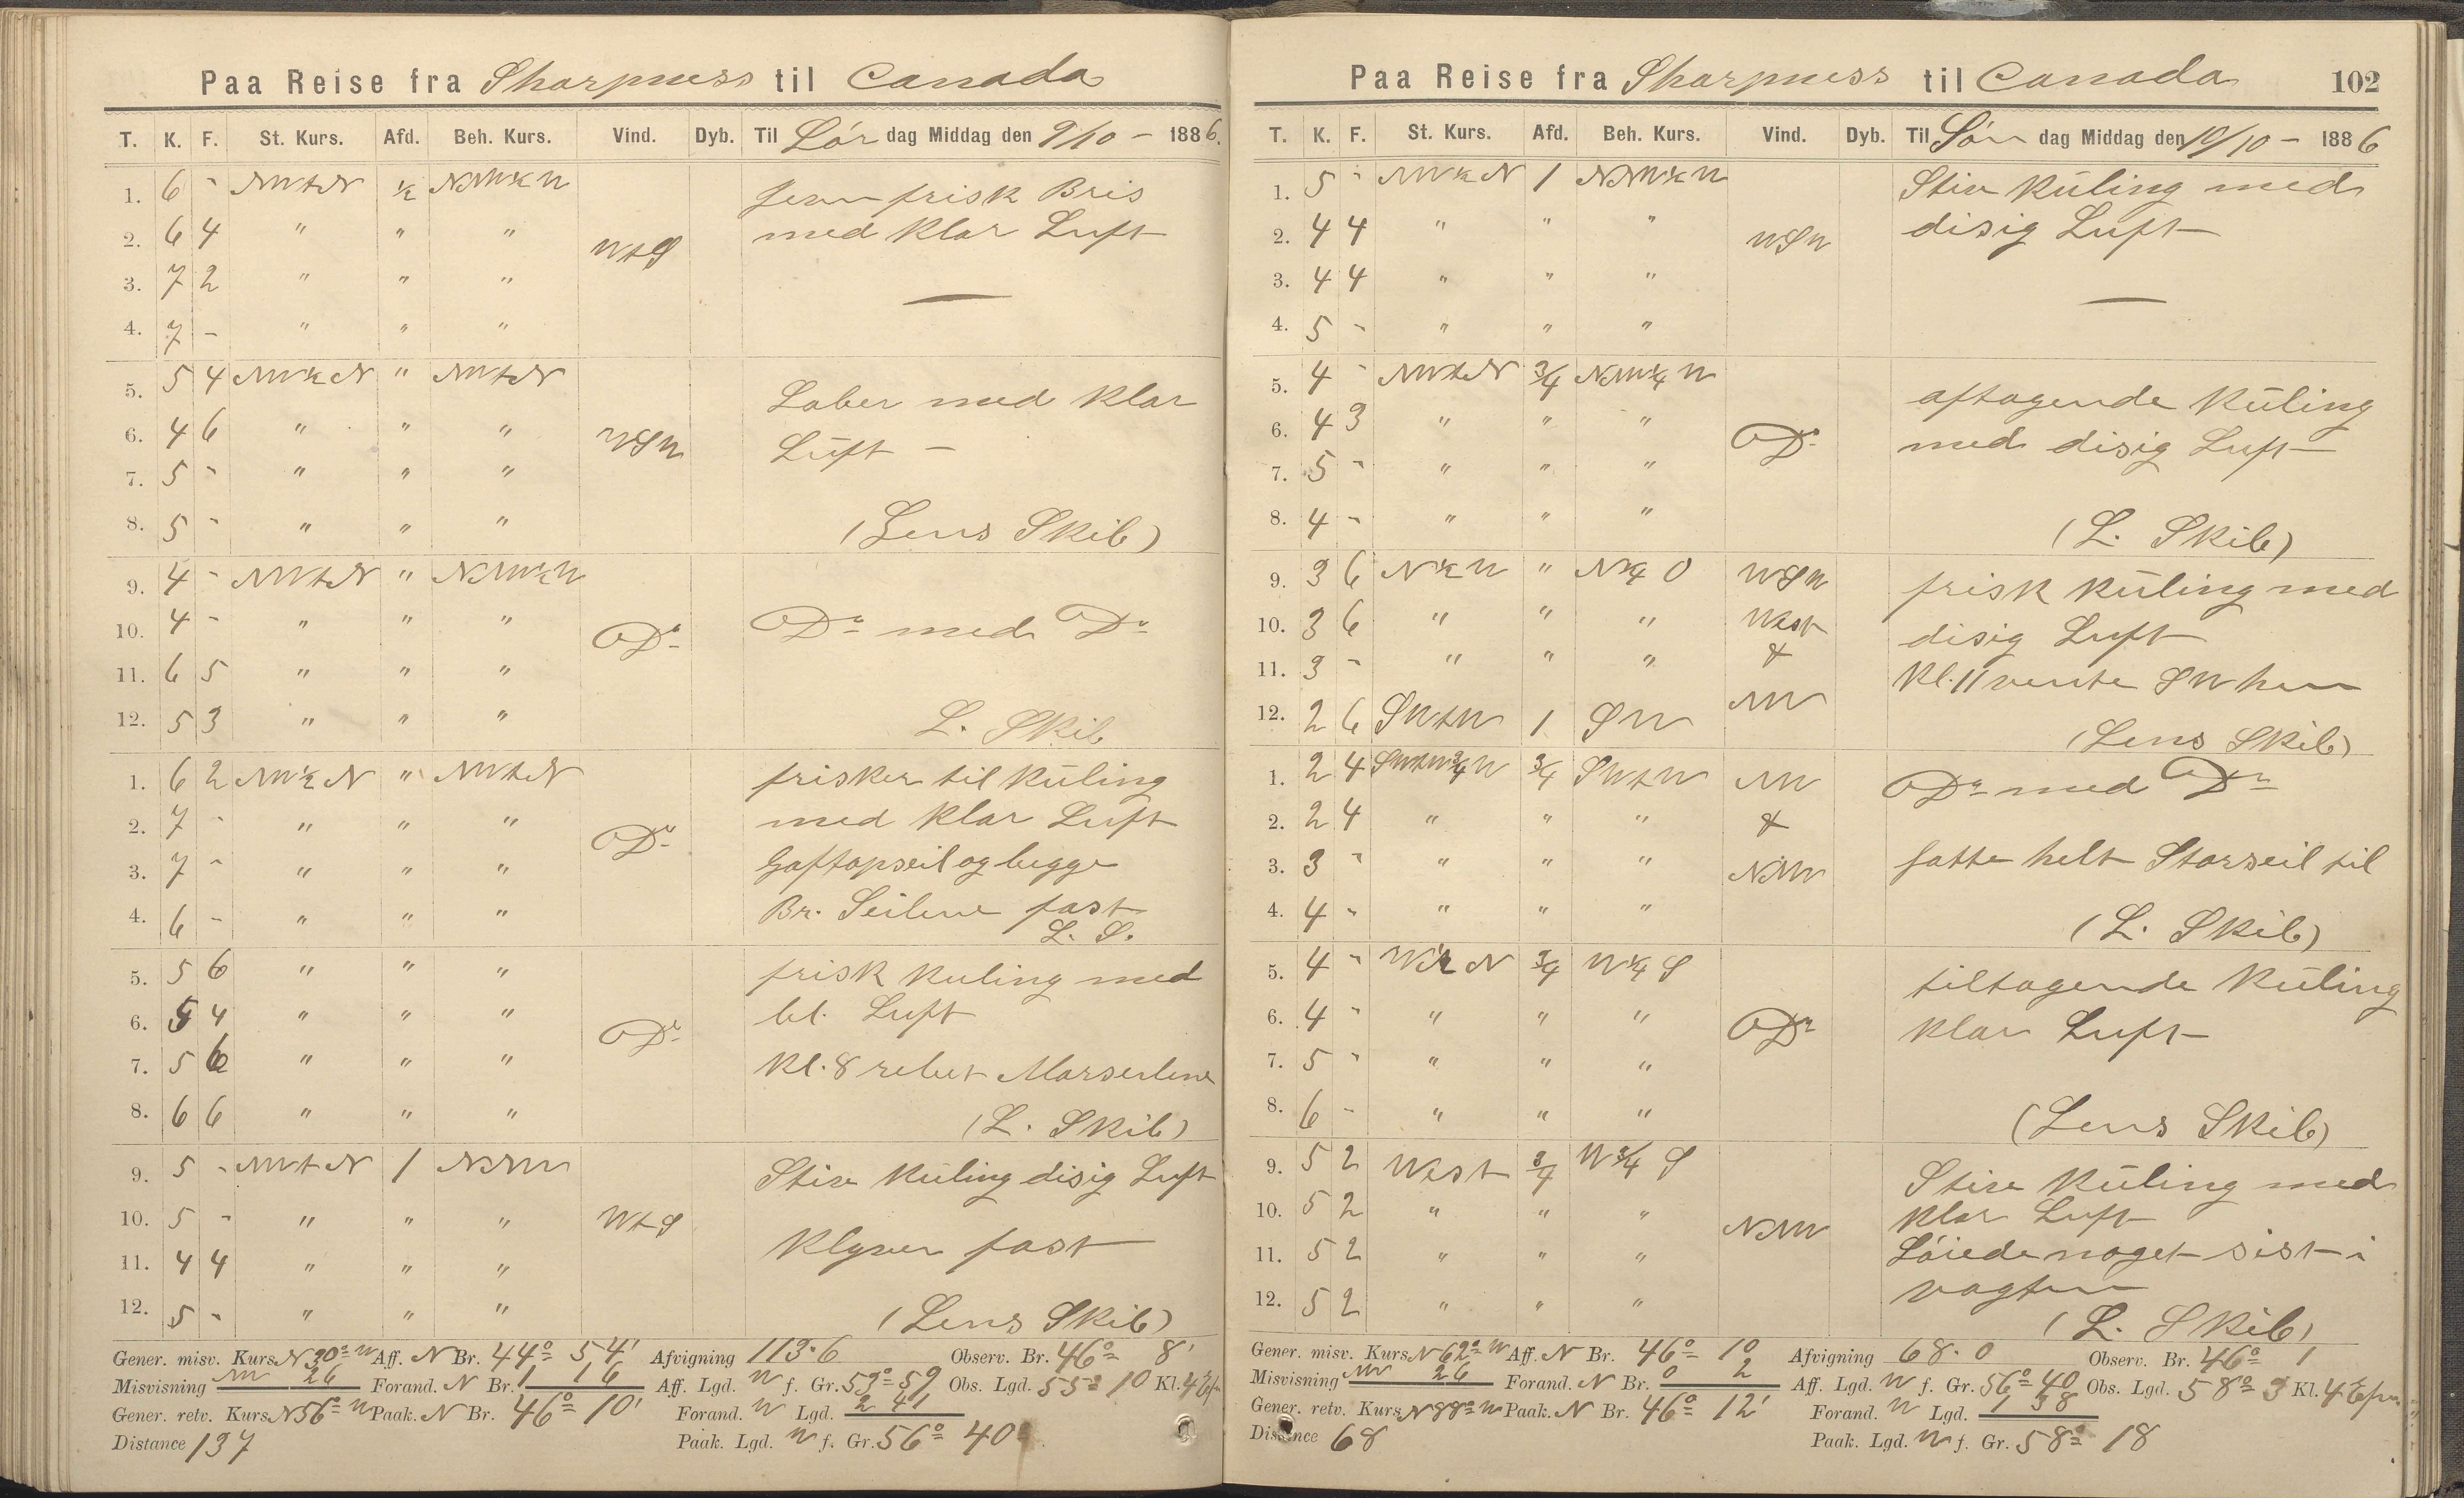 Paa Reise fra Sharpness til Canada
T. K. F. St. Kurs. Afd. Beh. Kurs. Vind. Dyb. Til Lör dag Middag den 9/10 - 1886.
1. 6 - NWtN ½ NNW½W Jevn frisk Bris
2. 6 4 " " " WtS med klar Luft
3. 7 2 " " "
4. 7 - " " "
5. 5 4 NW½N " NWtN Laber med klar
6. 4 6 " " " WSW Luft -
7. 5 - " " "
8. 5 - " " " (Lens Skib)
9. 4 - NWtN " NNW½W
10. 4 - " " " Do Do med Do
11. 6 5 " " "
12. 5 3 " " " L. Skib
1. 6 2 NW½N " NWtN frisker til Kuling
2. 7 - " " " Do med klar Luft
3. 7 - " " " Gaftopseil og begge
4. 6 - " " " Br. Seilene fast
L. S.
5. 5 6 " " " frisk kuling med
6. 5 4 " " " Do bl. Luft
7. 5 6 " " " Kl. 8 rebet Marseilene
8. 6 6 " " " (L. Skib)
9. 5 - NWtN 1 NNW Stiv Kuling disig Luft
10. 5 - " " " WtS
11. 4 4 " " " Klyver fast
12. 5 - " " " (Lens Skib)
Gener. misv. Kurs N30°W Aff. N Br. 44° 54' Afvigning 113.6 Observ. Br. 46° 8'
Misvisning NW 26 Forand. N Br. 1 16 Aff. Lgd. W f. Gr. 59° 59 Obs. Lgd. 55° 10 Kl. 4
Gener. retv. Kurs N56°W Paak. N Br. 46° 10' Forand. W Lgd. 2 41
Distance 137 Paak. Lgd. W f. Gr. 56° 40
Paa Reise fra Sharpness til Canada 102
T. K. F. St. Kurs. Afd. Beh. Kurs. Vind. Dyb. Til Sön dag Middag den 10/10 - 1886
1. 5 - NW½N 1 NNW½W Stiv Kuling med
2. 4 4 " " " WSW disig Luft
3. 4 4 " " "
4. 5 - " " "
5. 4 - NWtN ¾ NNW¼W aftagende Kuling
6. 4 3 " " " Do med disig Luft
7. 5 - " " "
8. 4 - " " " (L. Skib)
9. 3 6 N½W " N¼O WSW frisk Kuling med
10. 3 6 " " " West disig Luft
11. 3 - " " " & Kl. 11 vente SW hen
12. 2 6 SWtW 1 SW NW (Lens Skib)
1. 2 4 SWtW¾W ¾ SWtW NW Do med Do
2. 2 4 " " " &
3. 3 - " " " NNW satte helt Storseil til
4. 4 - " " " (L. Skib)
5. 4 - W½N ¾ W¼S tiltagende Kuling
6. 4 - " " " Do klar Luft
7. 5 - " " "
8. 6 - " " " (Lens Skib)
9. 5 2 West ¾ W¾S Stiv Kuling med
10. 5 2 " " " NNW klar Luft
11. 5 2 " " " Löiede noget sist i
12. 5 2 " " " vagten
(L. Skib)
Gener. misv. Kurs N62°W Aff. N Br. 46° 10 Afvigning 68.0 Observ. Br. 46° 1
Misvisning NW 26 Forand. N Br. 0 2 Aff. Lgd. W f. Gr. 56° 40 Obs. Lgd. 58° 3 Kl. 4
Gener. retv. Kurs N88°W Paak. N Br. 46° 12' Forand. W Lgd. 1 38
Distance 68 Paak. Lgd. W f. Gr. 58° 18